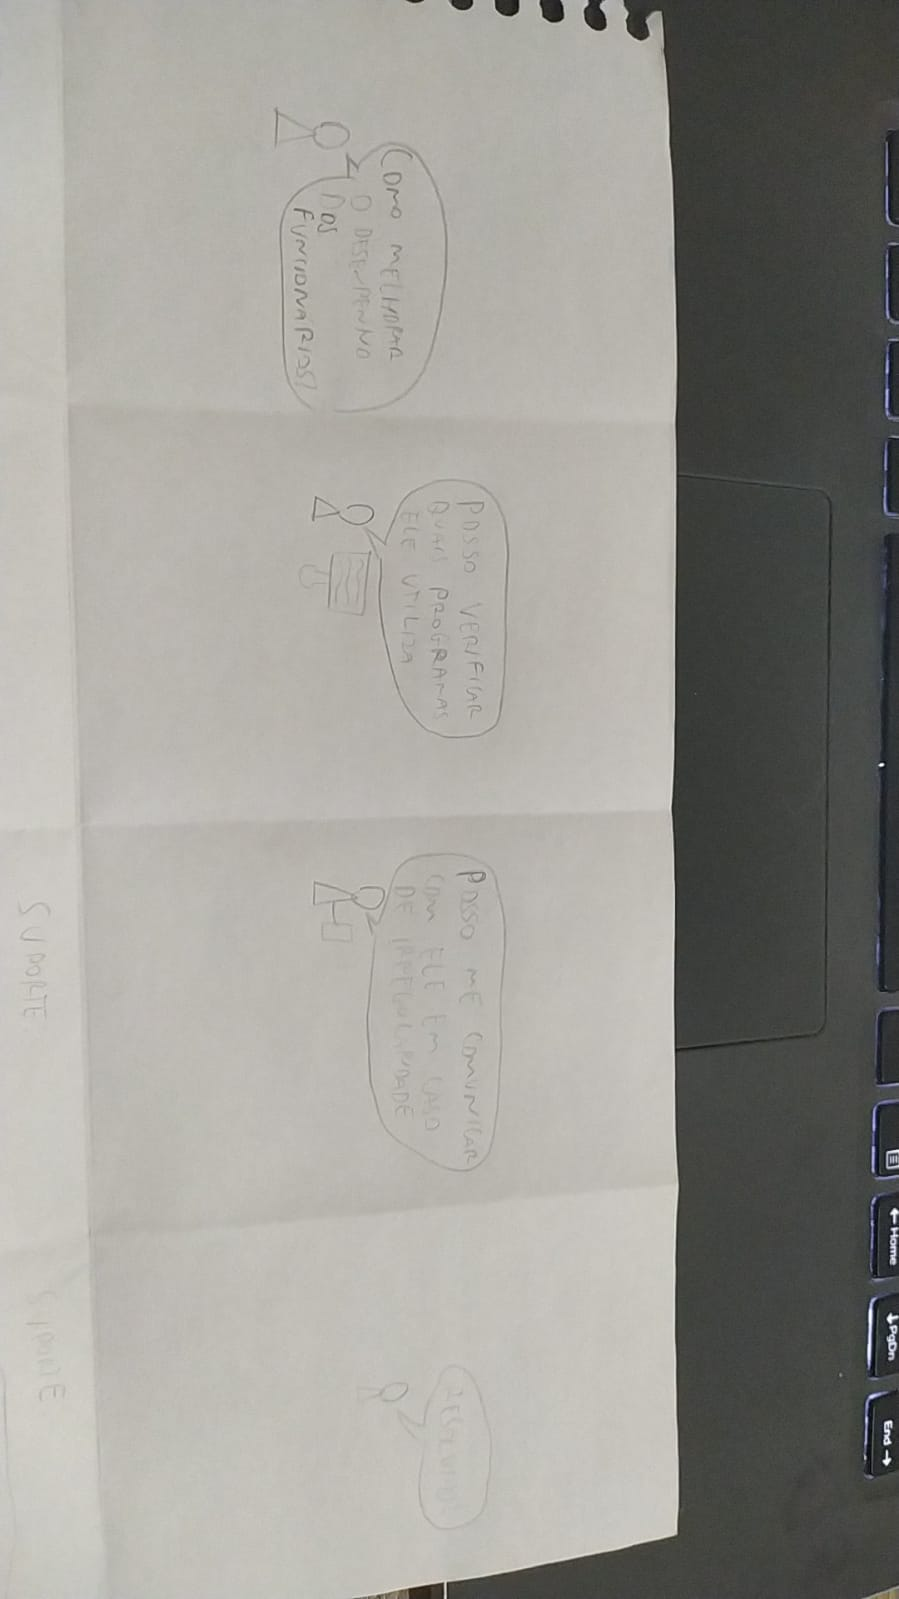 COMO MELHORAR
O DESEMPENHO
DOS
FUNCIONARIOS?
POSSO VERIFICAR
QUAIS PROGRAMAS
ELE UTILIZA
POSSO ME COMUNICAR
COM ELE EM CASO
DE IRREGULARIDADE
SUPORTE
← Home
↓ PgDn
End →